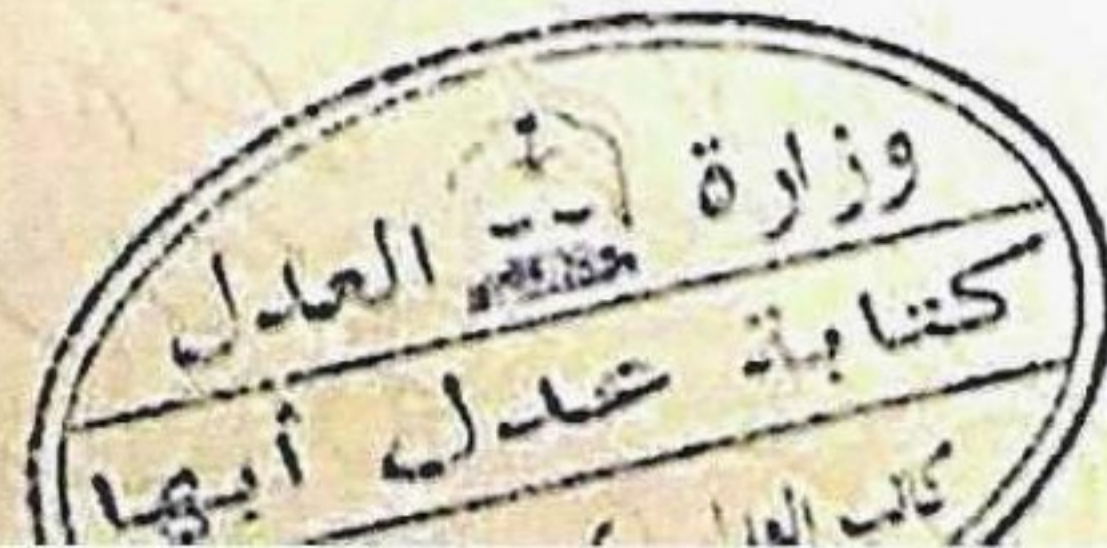 وزارة العدل
كتابة عدل أبها
كاتب العدل